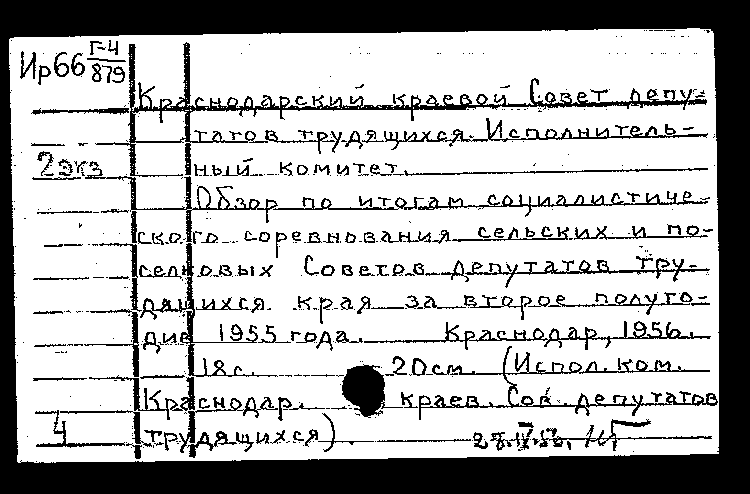 Ир66 Г-4
879
Краснодарский краевой Совет депу-
татов трудящихся. Исполнитель-
2экз ный комитет.
Обзор по итогам социалистиче-
ского соревнования сельских и по-
селковых Советов депутатов тру-
дящихся края за второе полуго-
дие 1955 года. Краснодар, 1956.
18с. 20см. (Испол. ком.
Краснодар. краев. Сов. депутатов
4 трудящихся).